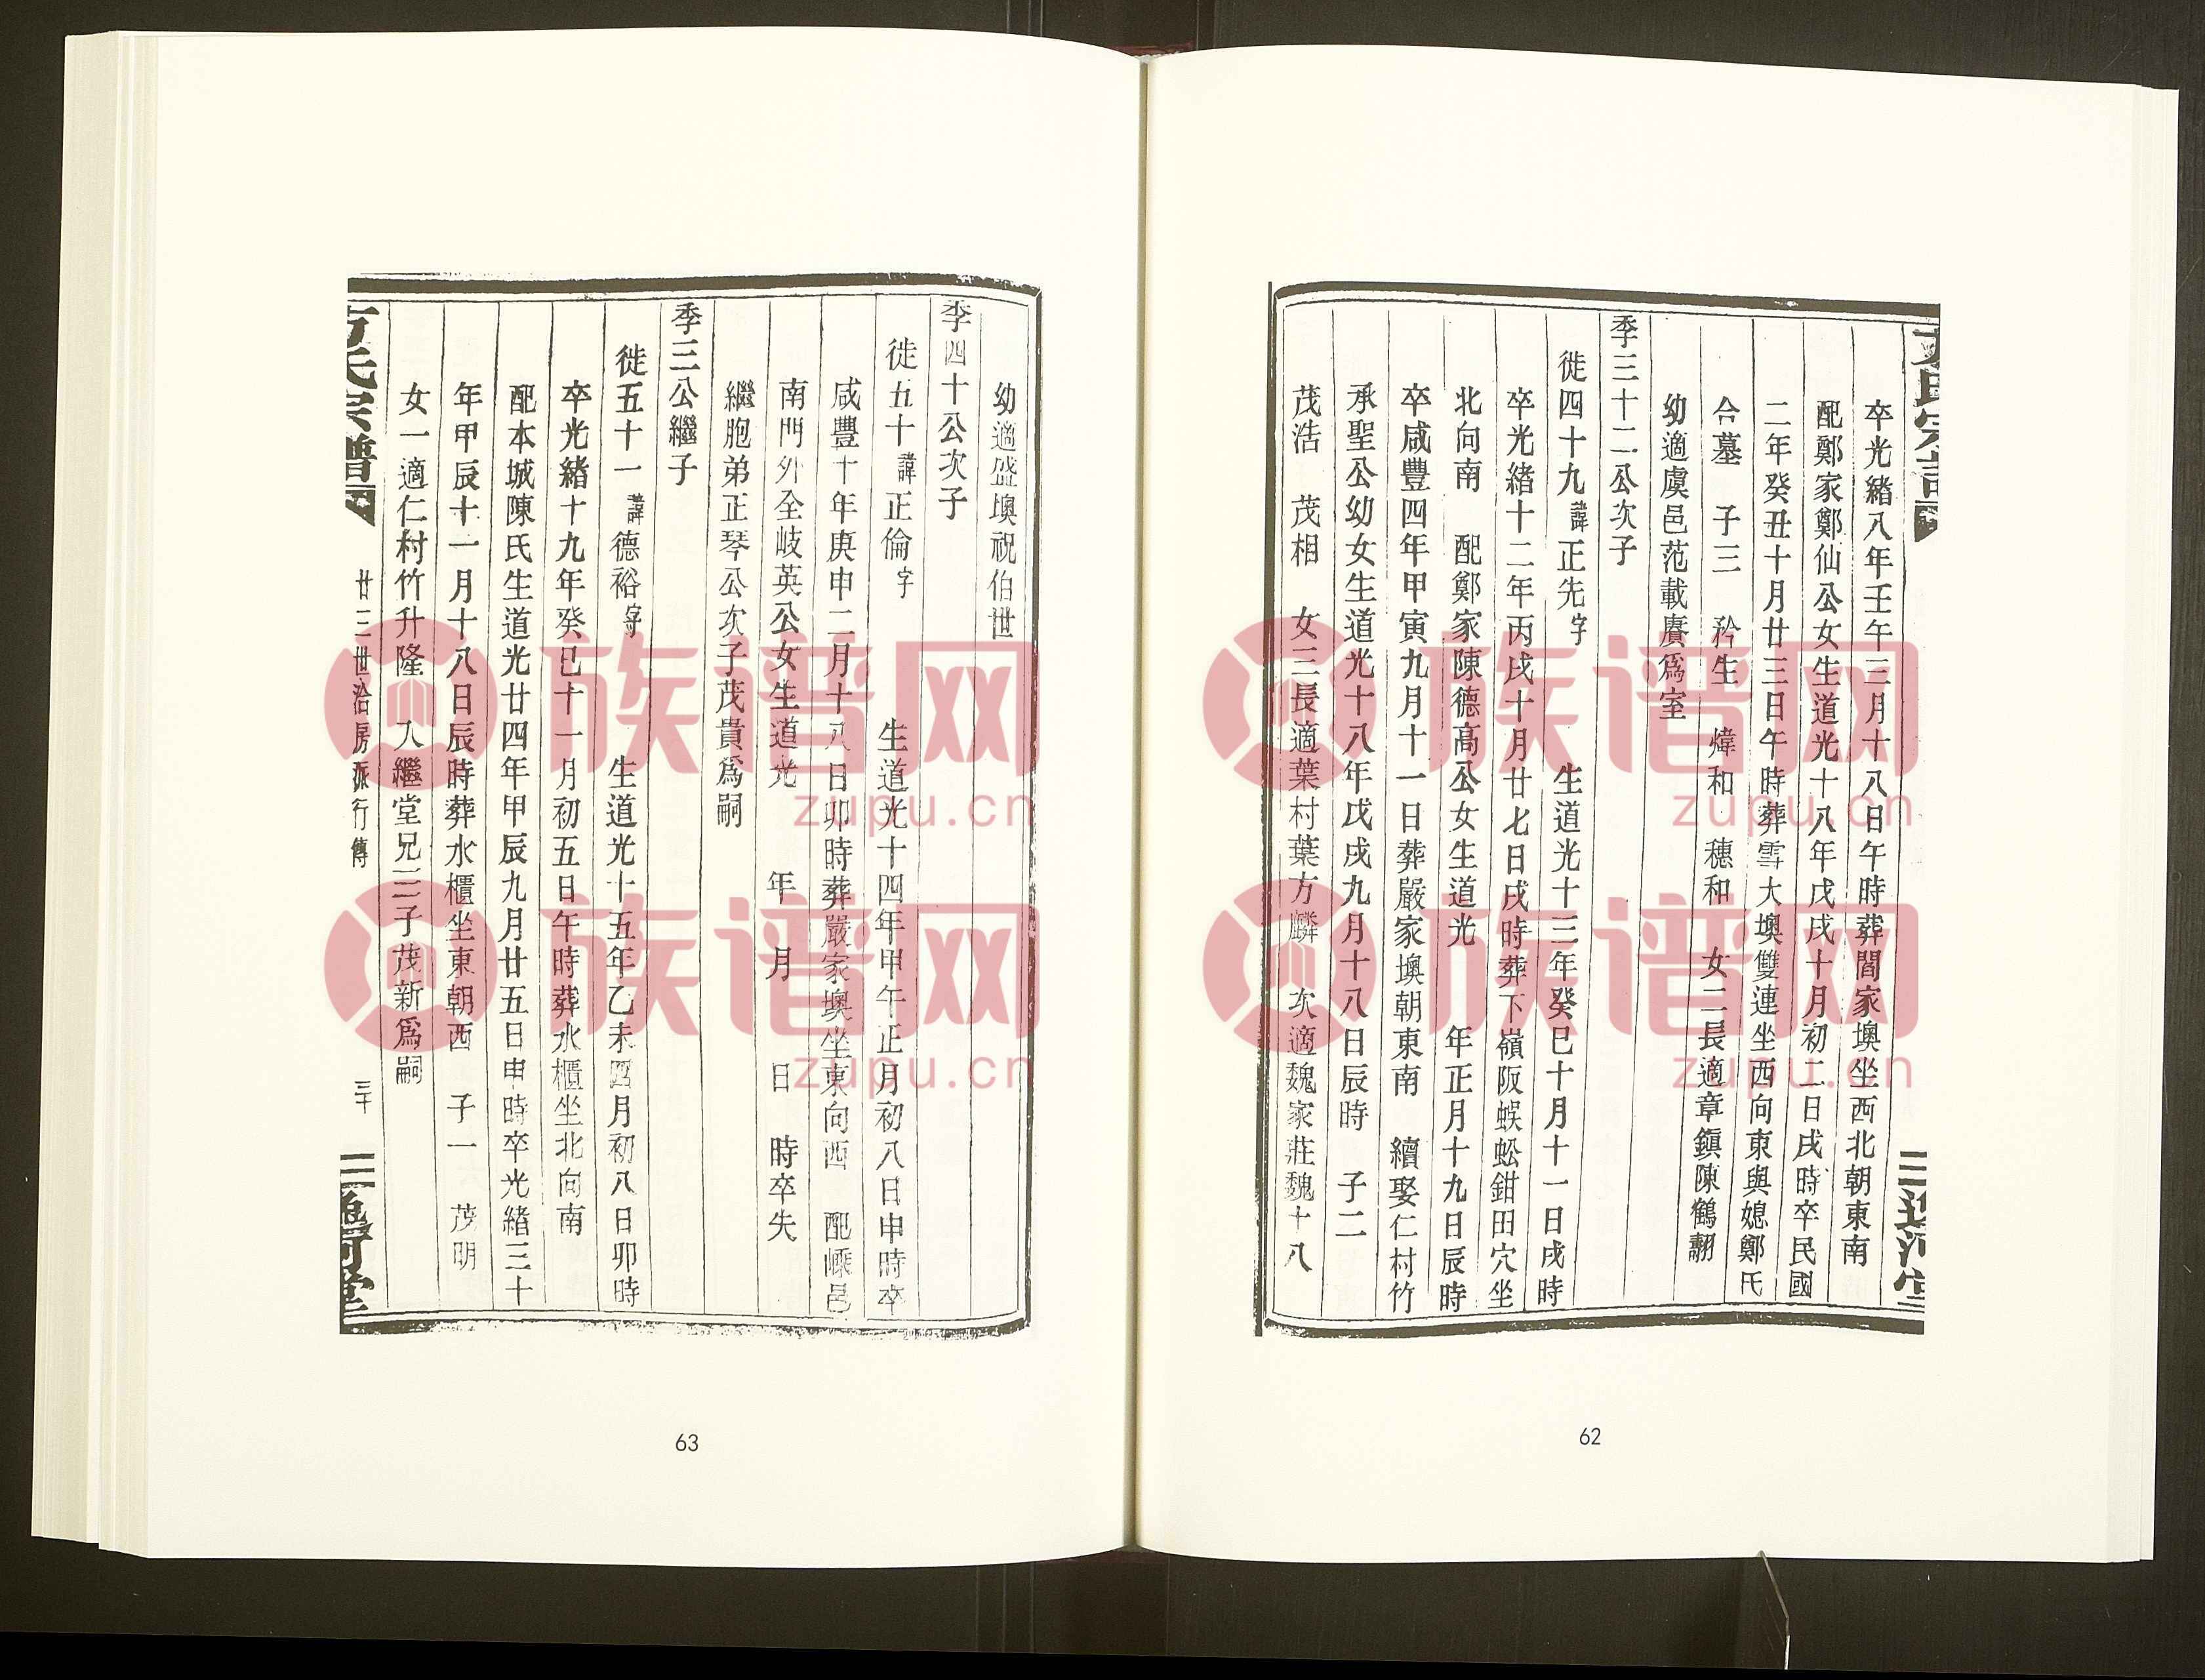 卒光緒八年壬午三月十八日午時葬閻家墺坐西北朝東南
配鄭家鄭仙公女生道光十八年戊戌十月初二日戌時卒民國
二年癸丑十月廿三日午時葬雪大墺雙連坐西向東與媳鄭氏
合墓 子三 矜生 煒和 穗和 女二長適章鎭陳鶴翽
幼適虞邑范載賡爲室
季三十二公次子
徙四十九諱正先字 生道光十三年癸巳十月十一日戌時
卒光緒十二年丙戌十月廿七日戌時葬下嶺阪蜈蚣鉗田穴坐
北向南 配鄭家陳德高公女生道光 年正月十九日辰時
卒咸豐四年甲寅九月十一日葬嚴家墺朝東南 續娶仁村竹
承聖公幼女生道光十八年戊戌九月十八日辰時 子二
茂浩 茂相 女三長適葉村葉方麟 次適魏家莊魏十八
62
幼適盛墺祝伯世
季四十公次子
徙五十諱正倫字 生道光十四年甲午正月初八日申時卒
咸豐十年庚申二月十八日卯時葬嚴家墺坐東向西 配嵊邑
南門外全岐英公女生道光 年 月 日 時卒失
繼胞弟正琴公次子茂貴爲嗣
季三公繼子
徙五十一諱德裕字 生道光十五年乙未四月初八日卯時
卒光緒十九年癸巳十一月初五日午時葬水櫃坐北向南
配本城陳氏生道光廿四年甲辰九月廿五日申時卒光緒三十
年甲辰十一月十八日辰時葬水櫃坐東朝西 子一 茂明
女一適仁村竹升隆 入繼堂兄三子茂新爲嗣
廿三世洽房派行傳 三十
63
族谱网
zupu.cn
族谱网
zupu.cn
族谱网
zupu.cn
族谱网
zupu.cn